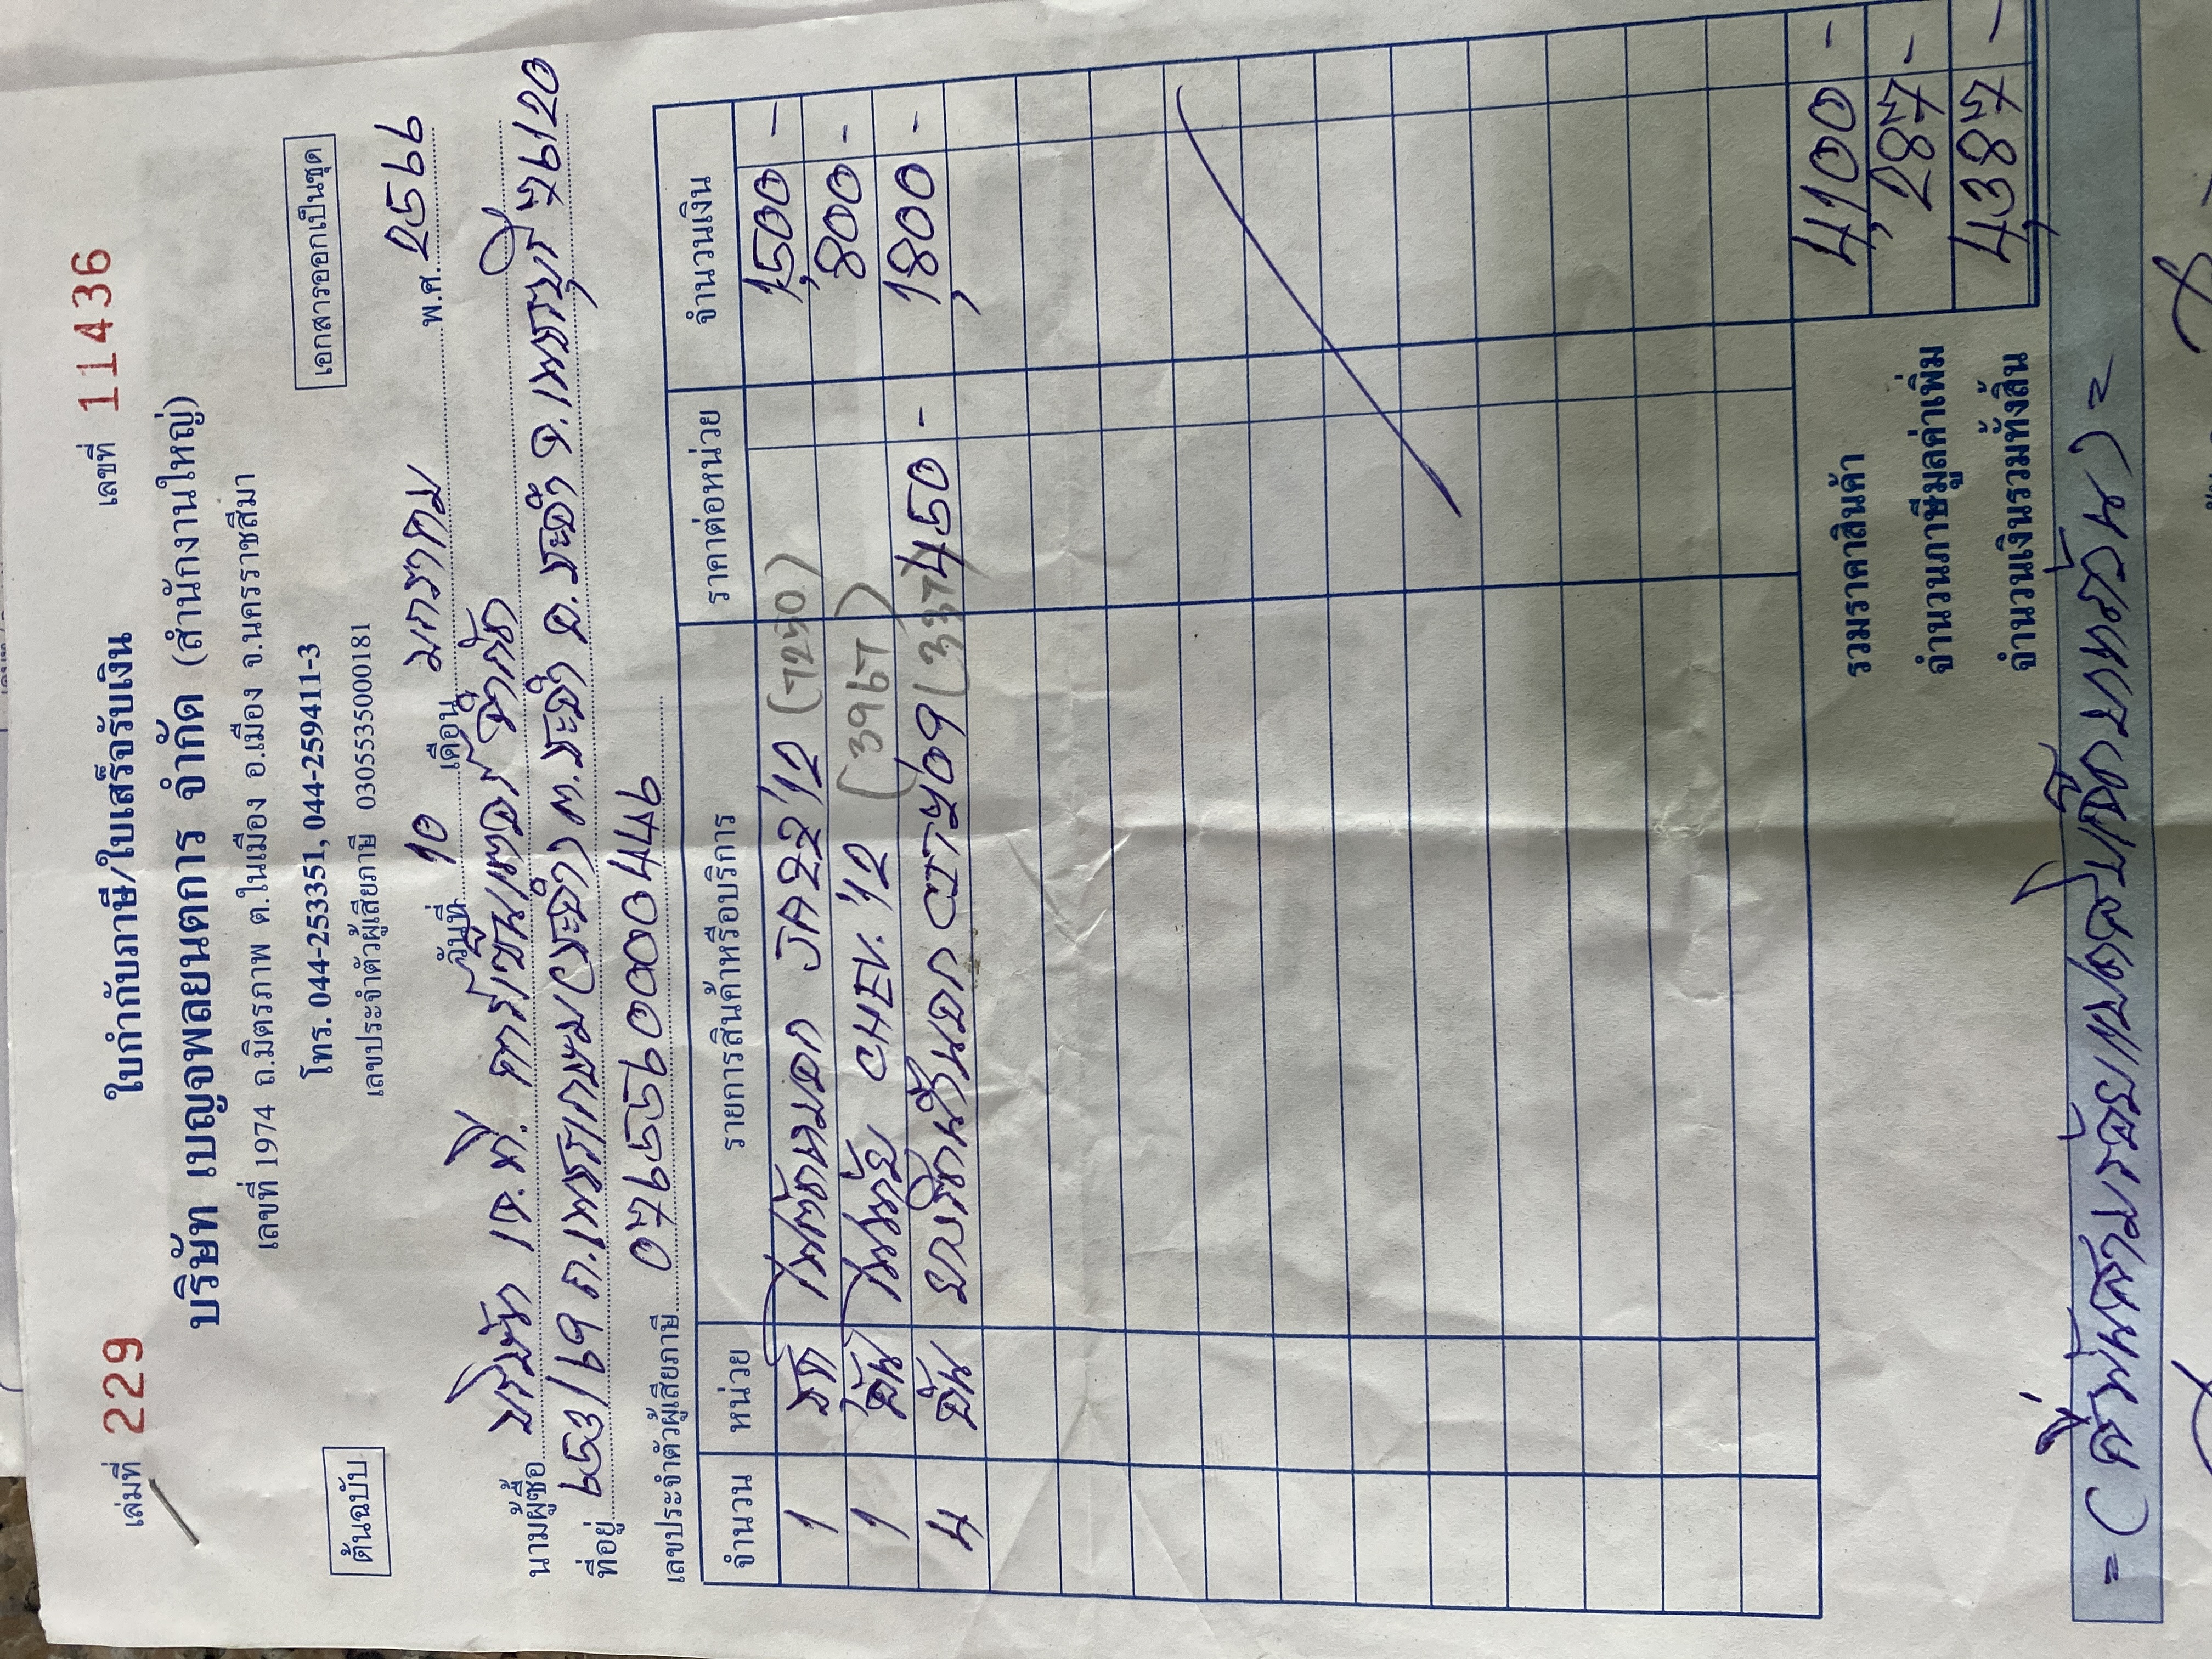 เล่มที่ 229 ใบกำกับภาษี/ใบเสร็จรับเงิน เลขที่ 11436
บริษัท เบญจพลยนตการ จำกัด (สำนักงานใหญ่)
เลขที่ 1974 ถ.มิตรภาพ ต.ในเมือง อ.เมือง จ.นครราชสีมา
ต้นฉบับ โทร. 044-253351, 044-259411-3 เอกสารออกเป็นชุด
เลขประจำตัวผู้เสียภาษี 0305535000181
วันที่ 10 เดือน มกราคม พ.ศ. 2566
นามผู้ซื้อ บริษัท เจ.ที. จำกัด
ที่อยู่ 953/69 ถ.เพชรเกษม ต.ชะอำ อ.ชะอำ จ.เพชรบุรี 76120
เลขประจำตัวผู้เสียภาษี 0765560004779
จำนวน หน่วย รายการสินค้าหรือบริการ ราคาต่อหน่วย จำนวนเงิน
1 JAZZ '12 (7250) 1,500 -
1 อัน CHEV. '12 (3967) 800 -
4 อัน CITY '09 (337) 450 - 1,800 -
รวมราคาสินค้า 4,100 -
จำนวนภาษีมูลค่าเพิ่ม 287 -
จำนวนเงินรวมทั้งสิ้น 4,387 -
= ( สี่พันสามร้อยแปดสิบเจ็ดบาทถ้วน ) =